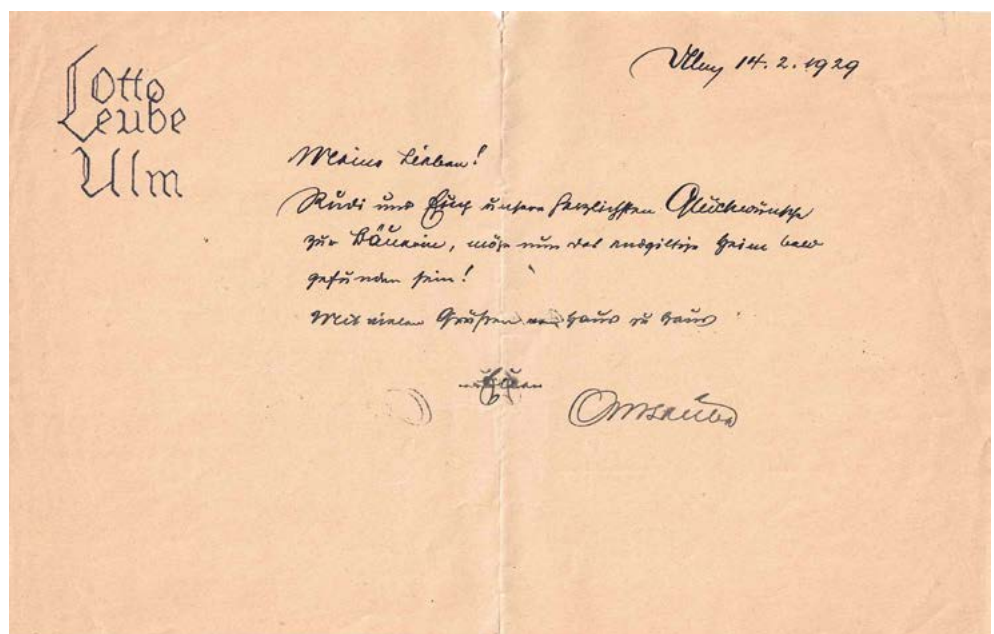 Otto
Leube
Ulm
Ulm 14.2.1929
Meine Lieben!
Rudi und Euch unsere herzlichsten Glückwünsche
zur Bäuerin, möge nun das endgiltige Heim bald
gefunden sein!
Mit vielen Grüßen von Haus zu Haus
Otto Leube